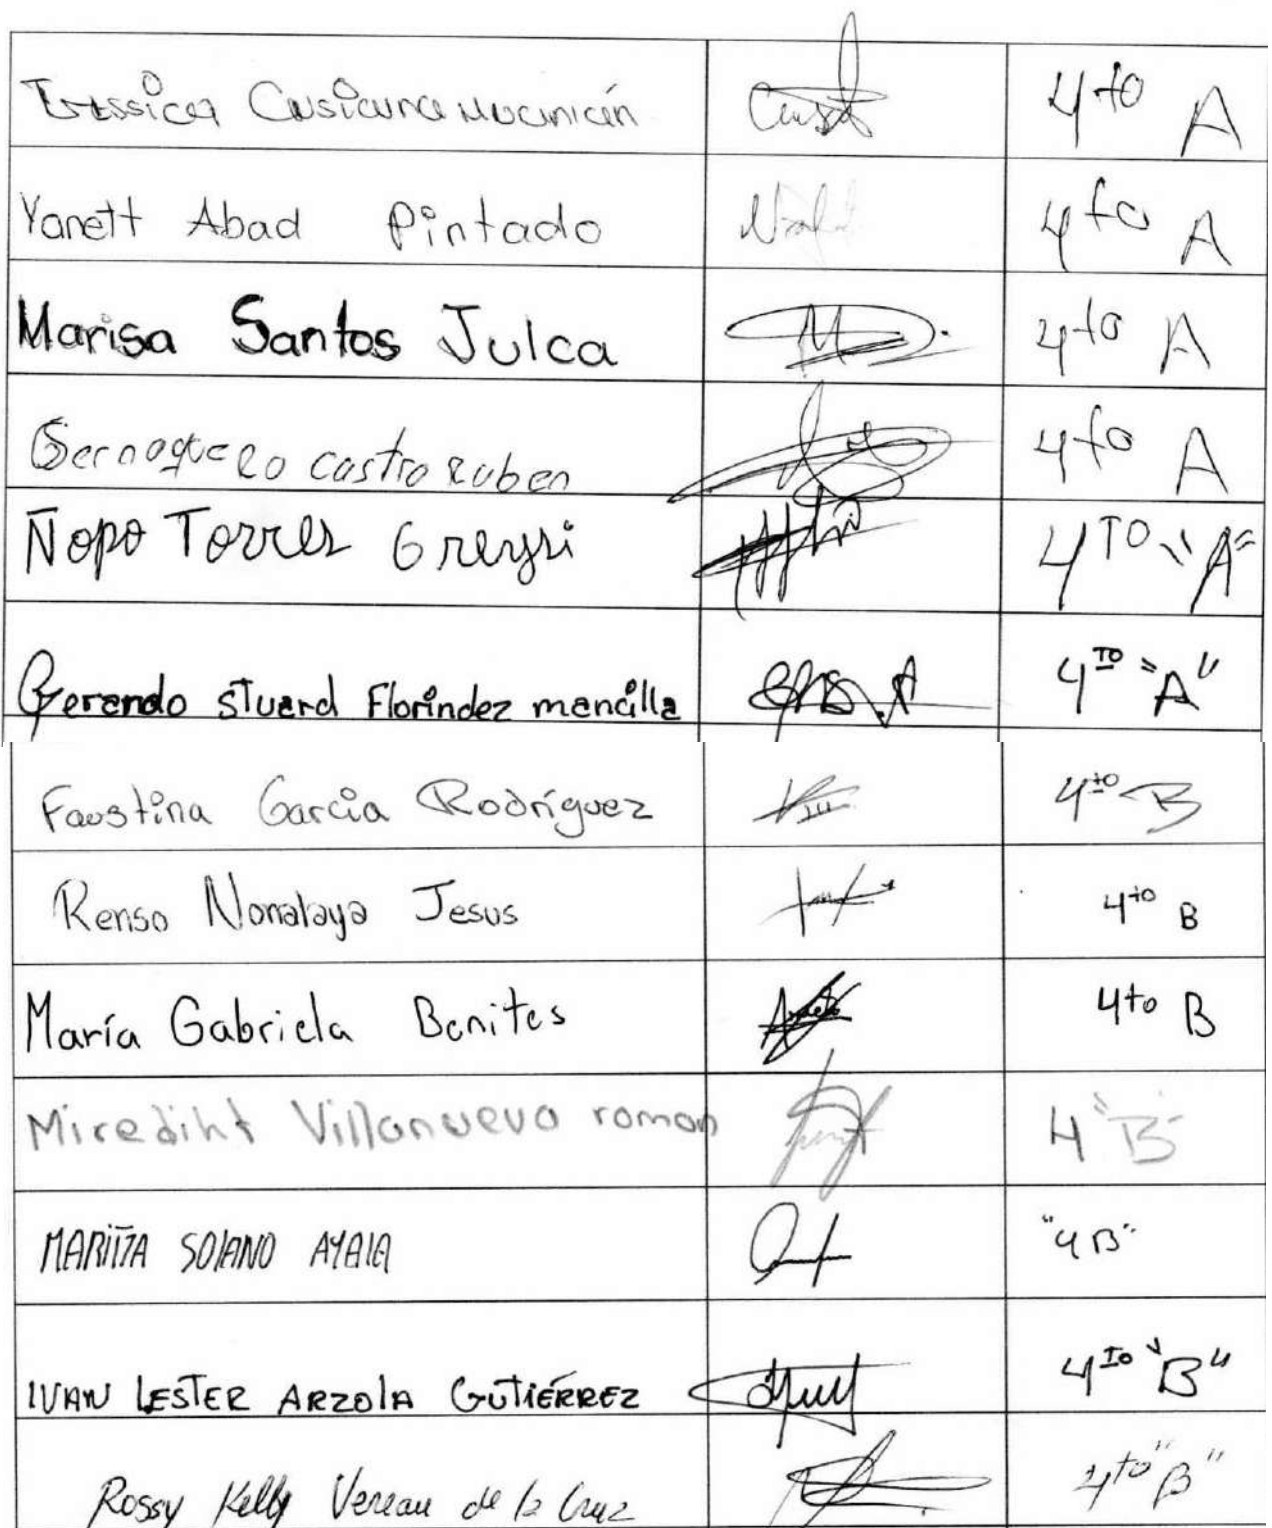 Yanett Abad Pintado 4to A
Marisa Santos Julca 4to A
castro Ruben 4to A
Ñopo Torres Greysi 4TO "A"
Gerardo stuard Florindez mancilla 4TO "A"
Faustina Garcia Rodríguez 4to B
Renso Nonalaya Jesus 4to B
María Gabriela Benites 4to B
Mirediht Villanueva roman 4 "B"
MARITZA SOLANO AYALA "4 B"
IVAN LESTER ARZOLA GUTIÉRREZ 4TO "B"
Rossy Kelly Vereau de la Cruz 4to "B"